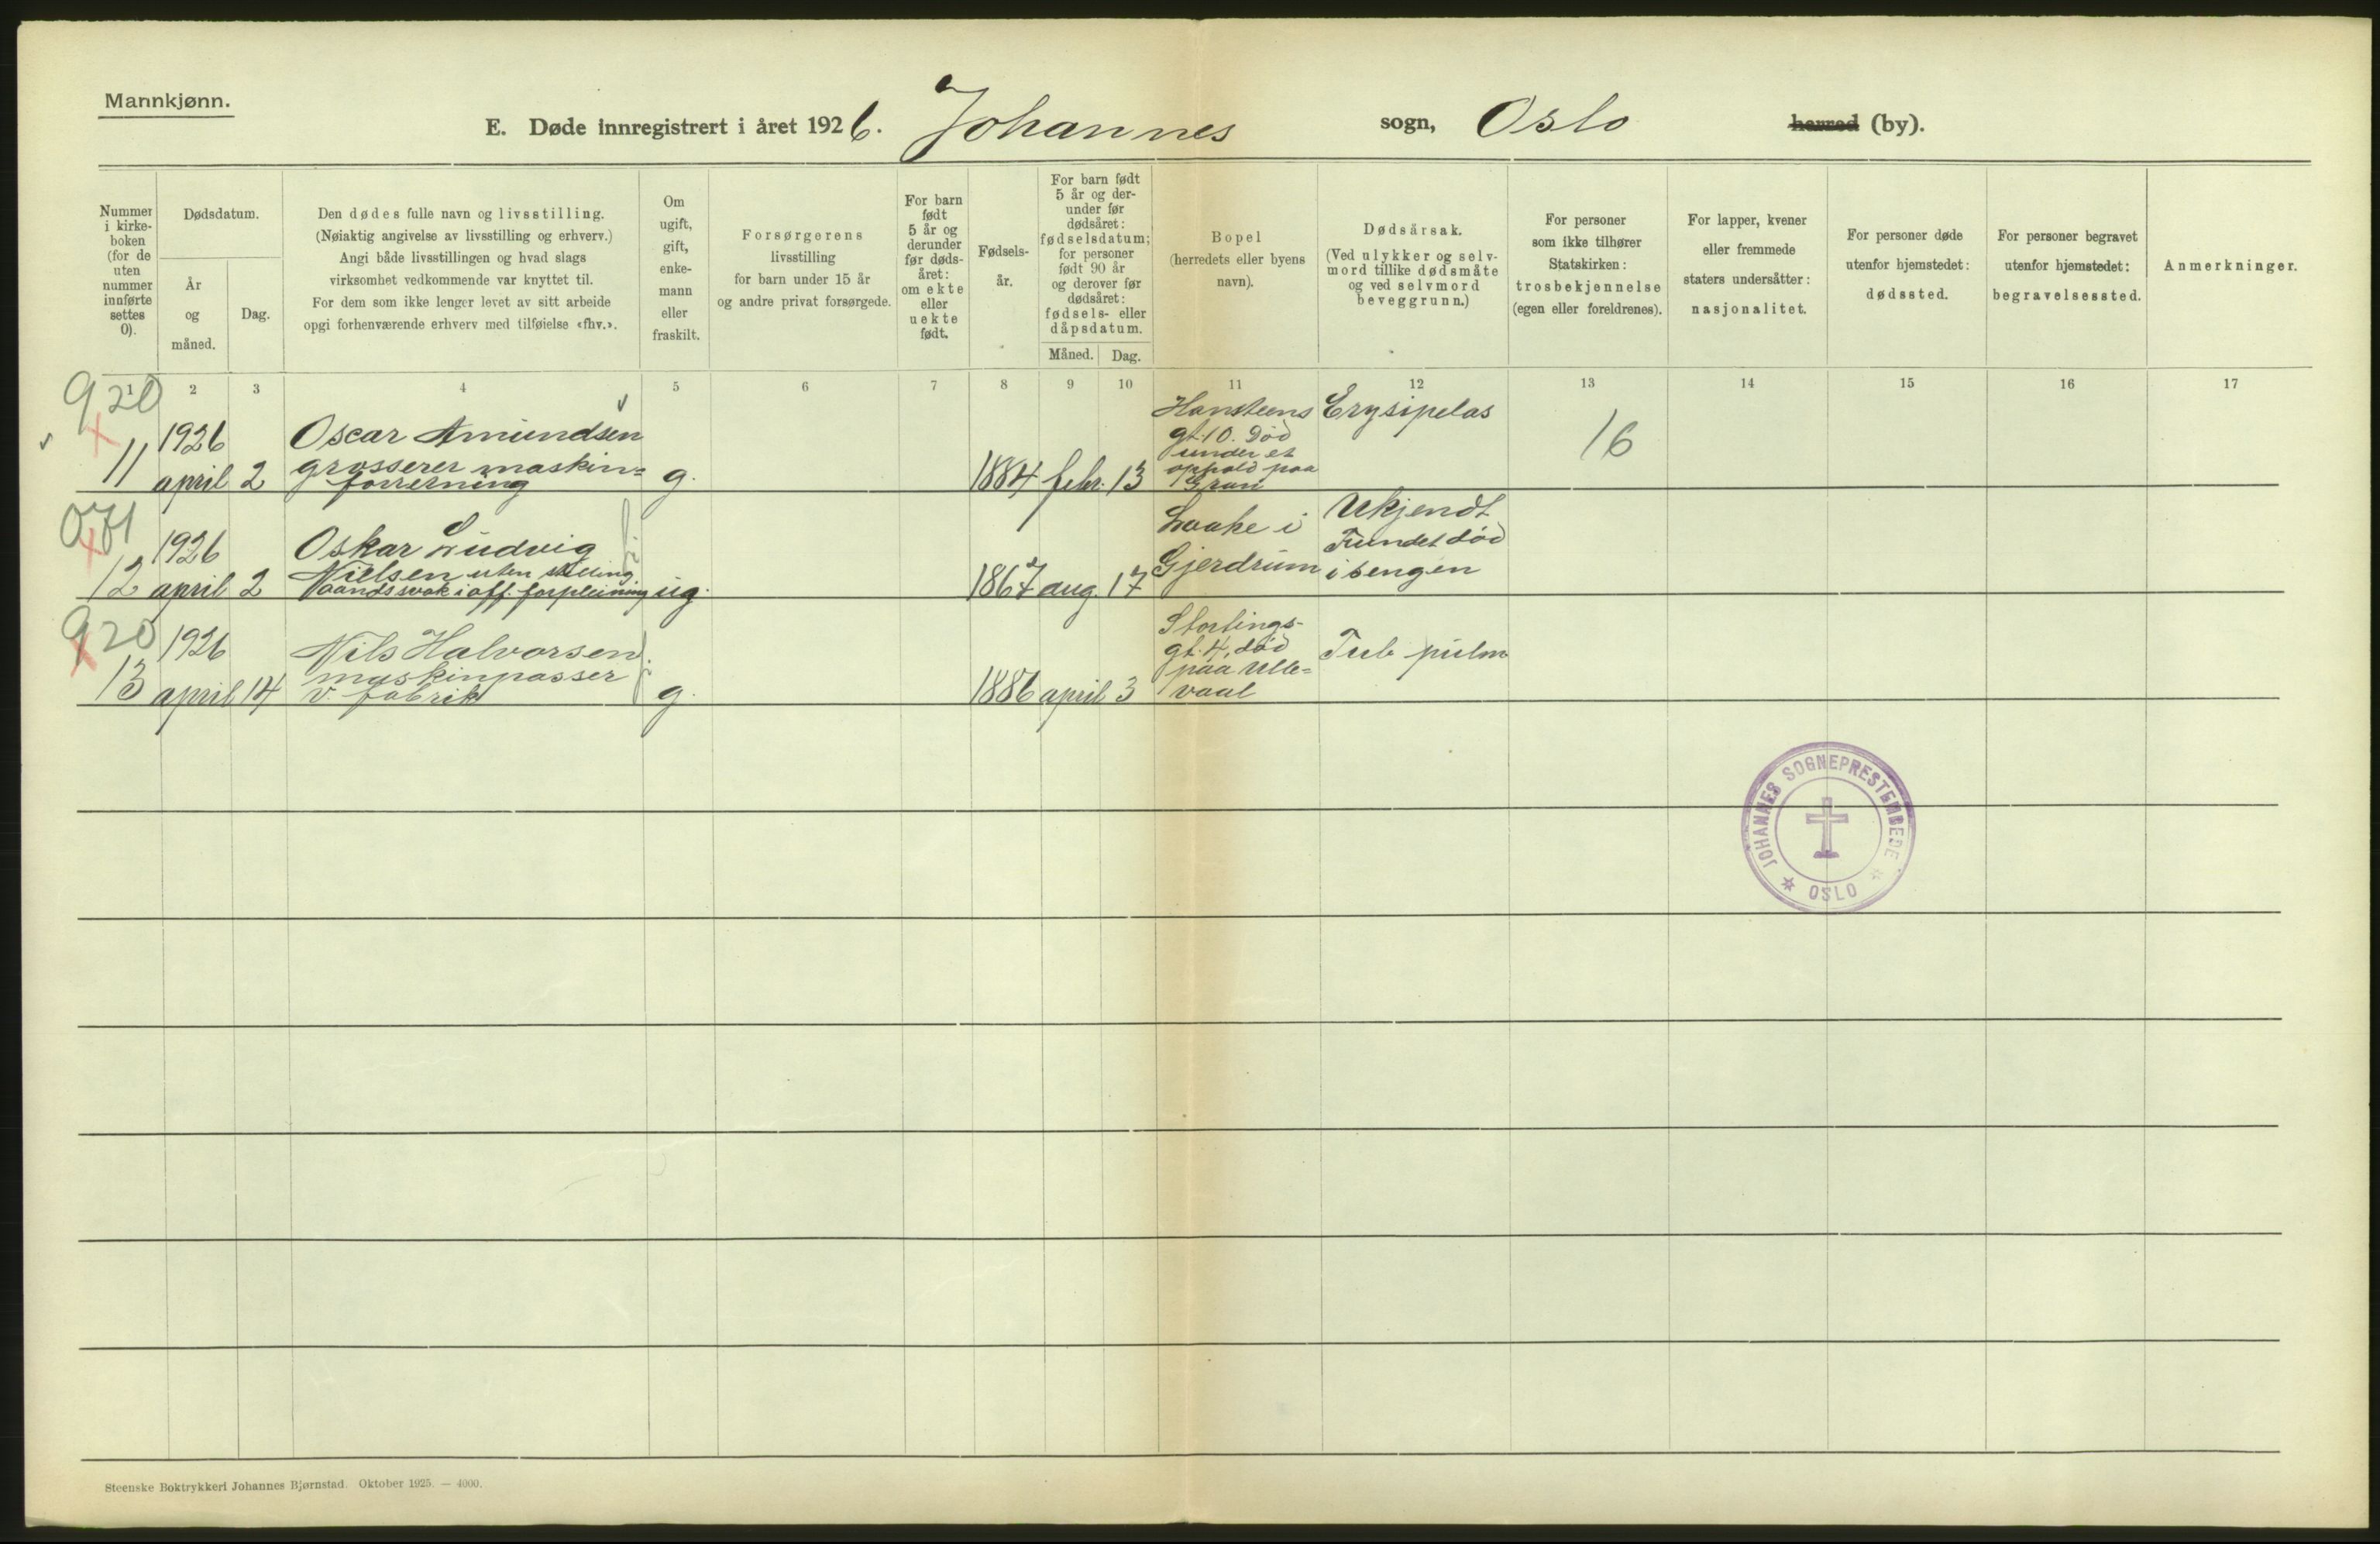 Mannkjønn.
E. Døde innregistrert i året 1926. Johannes sogn, Oslo herred (by).
Nummer
i kirke-
boken
(for de
uten
nummer
innførte
settes
0).
Dødsdatum.
År
og
måned.
Dag.
Den dødes fulle navn og livsstilling.
(Nøiaktig angivelse av livsstilling og erhverv.)
Angi både livsstillingen og hvad slags
virksomhet vedkommende var knyttet til.
For dem som ikke lenger levet av sitt arbeide
opgi forhenværende erhverv med tilføielse «fhv.».
Om
ugift,
gift,
enke-
mann
eller
fraskilt.
Forsørgerens
livsstilling
for barn under 15 år
og andre privat forsørgede.
For barn
født
5 år og
derunder
før døds-
året:
om ekte
eller
uekte
født.
Fødsels-
år.
For barn født
5 år og der-
under før
dødsåret:
fødselsdatum;
for personer
født 90 år
og derover før
dødsåret:
fødsels- eller
dåpsdatum.
Måned.
Dag.
Bopel
(herredets eller byens
navn).
Dødsårsak.
(Ved ulykker og selv-
mord tillike dødsmåte
og ved selvmord
beveggrunn.)
For personer
som ikke tilhører
Statskirken:
trosbekjennelse
(egen eller foreldrenes).
For lapper, kvener
eller fremmede
staters undersåtter:
nasjonalitet.
For personer døde
utenfor hjemstedet:
dødssted.
For personer begravet
utenfor hjemstedet:
begravelsessted.
Anmerkninger.
1 2 3 4 5 6 7 8 9 10 11 12 13 14 15 16 17
920
11
1926
april 2
Oscar Amundsen
grosserer maskin=
forretning
g.
1884 febr. 13
Hansteens
gt. 10. Død
under et
ophold paa
Gran
Erysipelas
16
071
12
1926
april 2
Oskar Ludvig
Nielsen uten stilling
Aandssvak i off. forpleining
ug.
1867 aug. 17
Laake i
Gjerdrum
Ukjendt
Fundet død
i sengen
920
13
1926
april 14
Nils Halvorsen
maskinpasser
v. fabrik
g.
1886 april 3
Stortings-
gt. 4, død
paa Ulle=
vaal
Tub pulm
JOHANNES SOGNEPRESTEMBEDE
OSLO
Steenske Boktrykkeri Johannes Bjørnstad. Oktober 1925. — 4000.